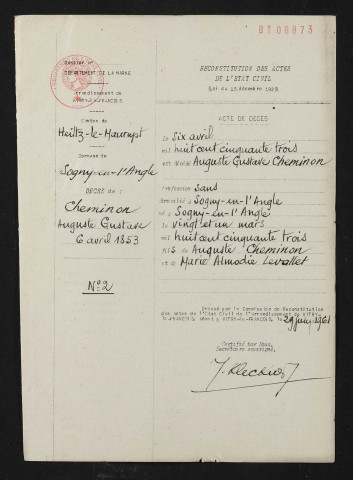 BT00873
Dossier n°
DÉPARTEMENT DE LA MARNE
Arrondissement de
VITRY-le-FRANÇOIS
Canton de
Heiltz-le-Maurupt
Commune de
Sogny-en-l'Angle
DECES de :
Cheminon
Auguste Gustave
6 avril 1853
N°2
RECONSTITUTION DES ACTES
DE L'ETAT CIVIL
Loi du 15 décembre 1923
ACTE DE DECES
Le Six avril
mil huit cent cinquante trois
est décédé Auguste Gustave Cheminon
Profession sans
domicilié à Sogny-en-l'Angle
né à Sogny-en-l'Angle
le vingt et un mars
mil huit cent cinquante trois
FILS de Auguste Cheminon
et de Marie Almodie Levallet
Dressé par la Commission de Reconstitution
des actes de l'Etat Civil de l'arrondissement de VITRY-
le-FRANCOIS, séant à VITRY-le-FRANCOIS, le 29 juin 1961
Certifié par Nous,
Secrétaire soussigné,